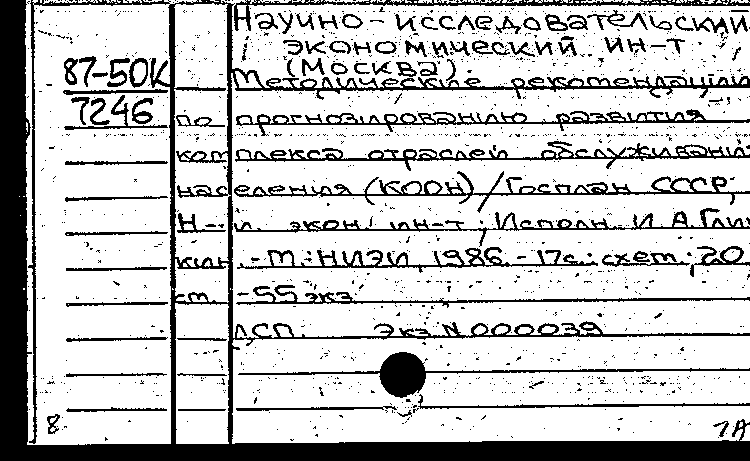 Научно-исследовательский
экономический ин-т
(Москва).
87-50К Методические рекомендации
7246 по прогнозированию развития
комплекса отраслей обслуживания
населения (КООН) / Госплан СССР;
Н.-и. экон. ин-т; Исполн. И.А.
.-М.: НИЭИ, 1986.-17с.: схем.; 20
см. -55 экз
ДСП. Экз N 000039
8